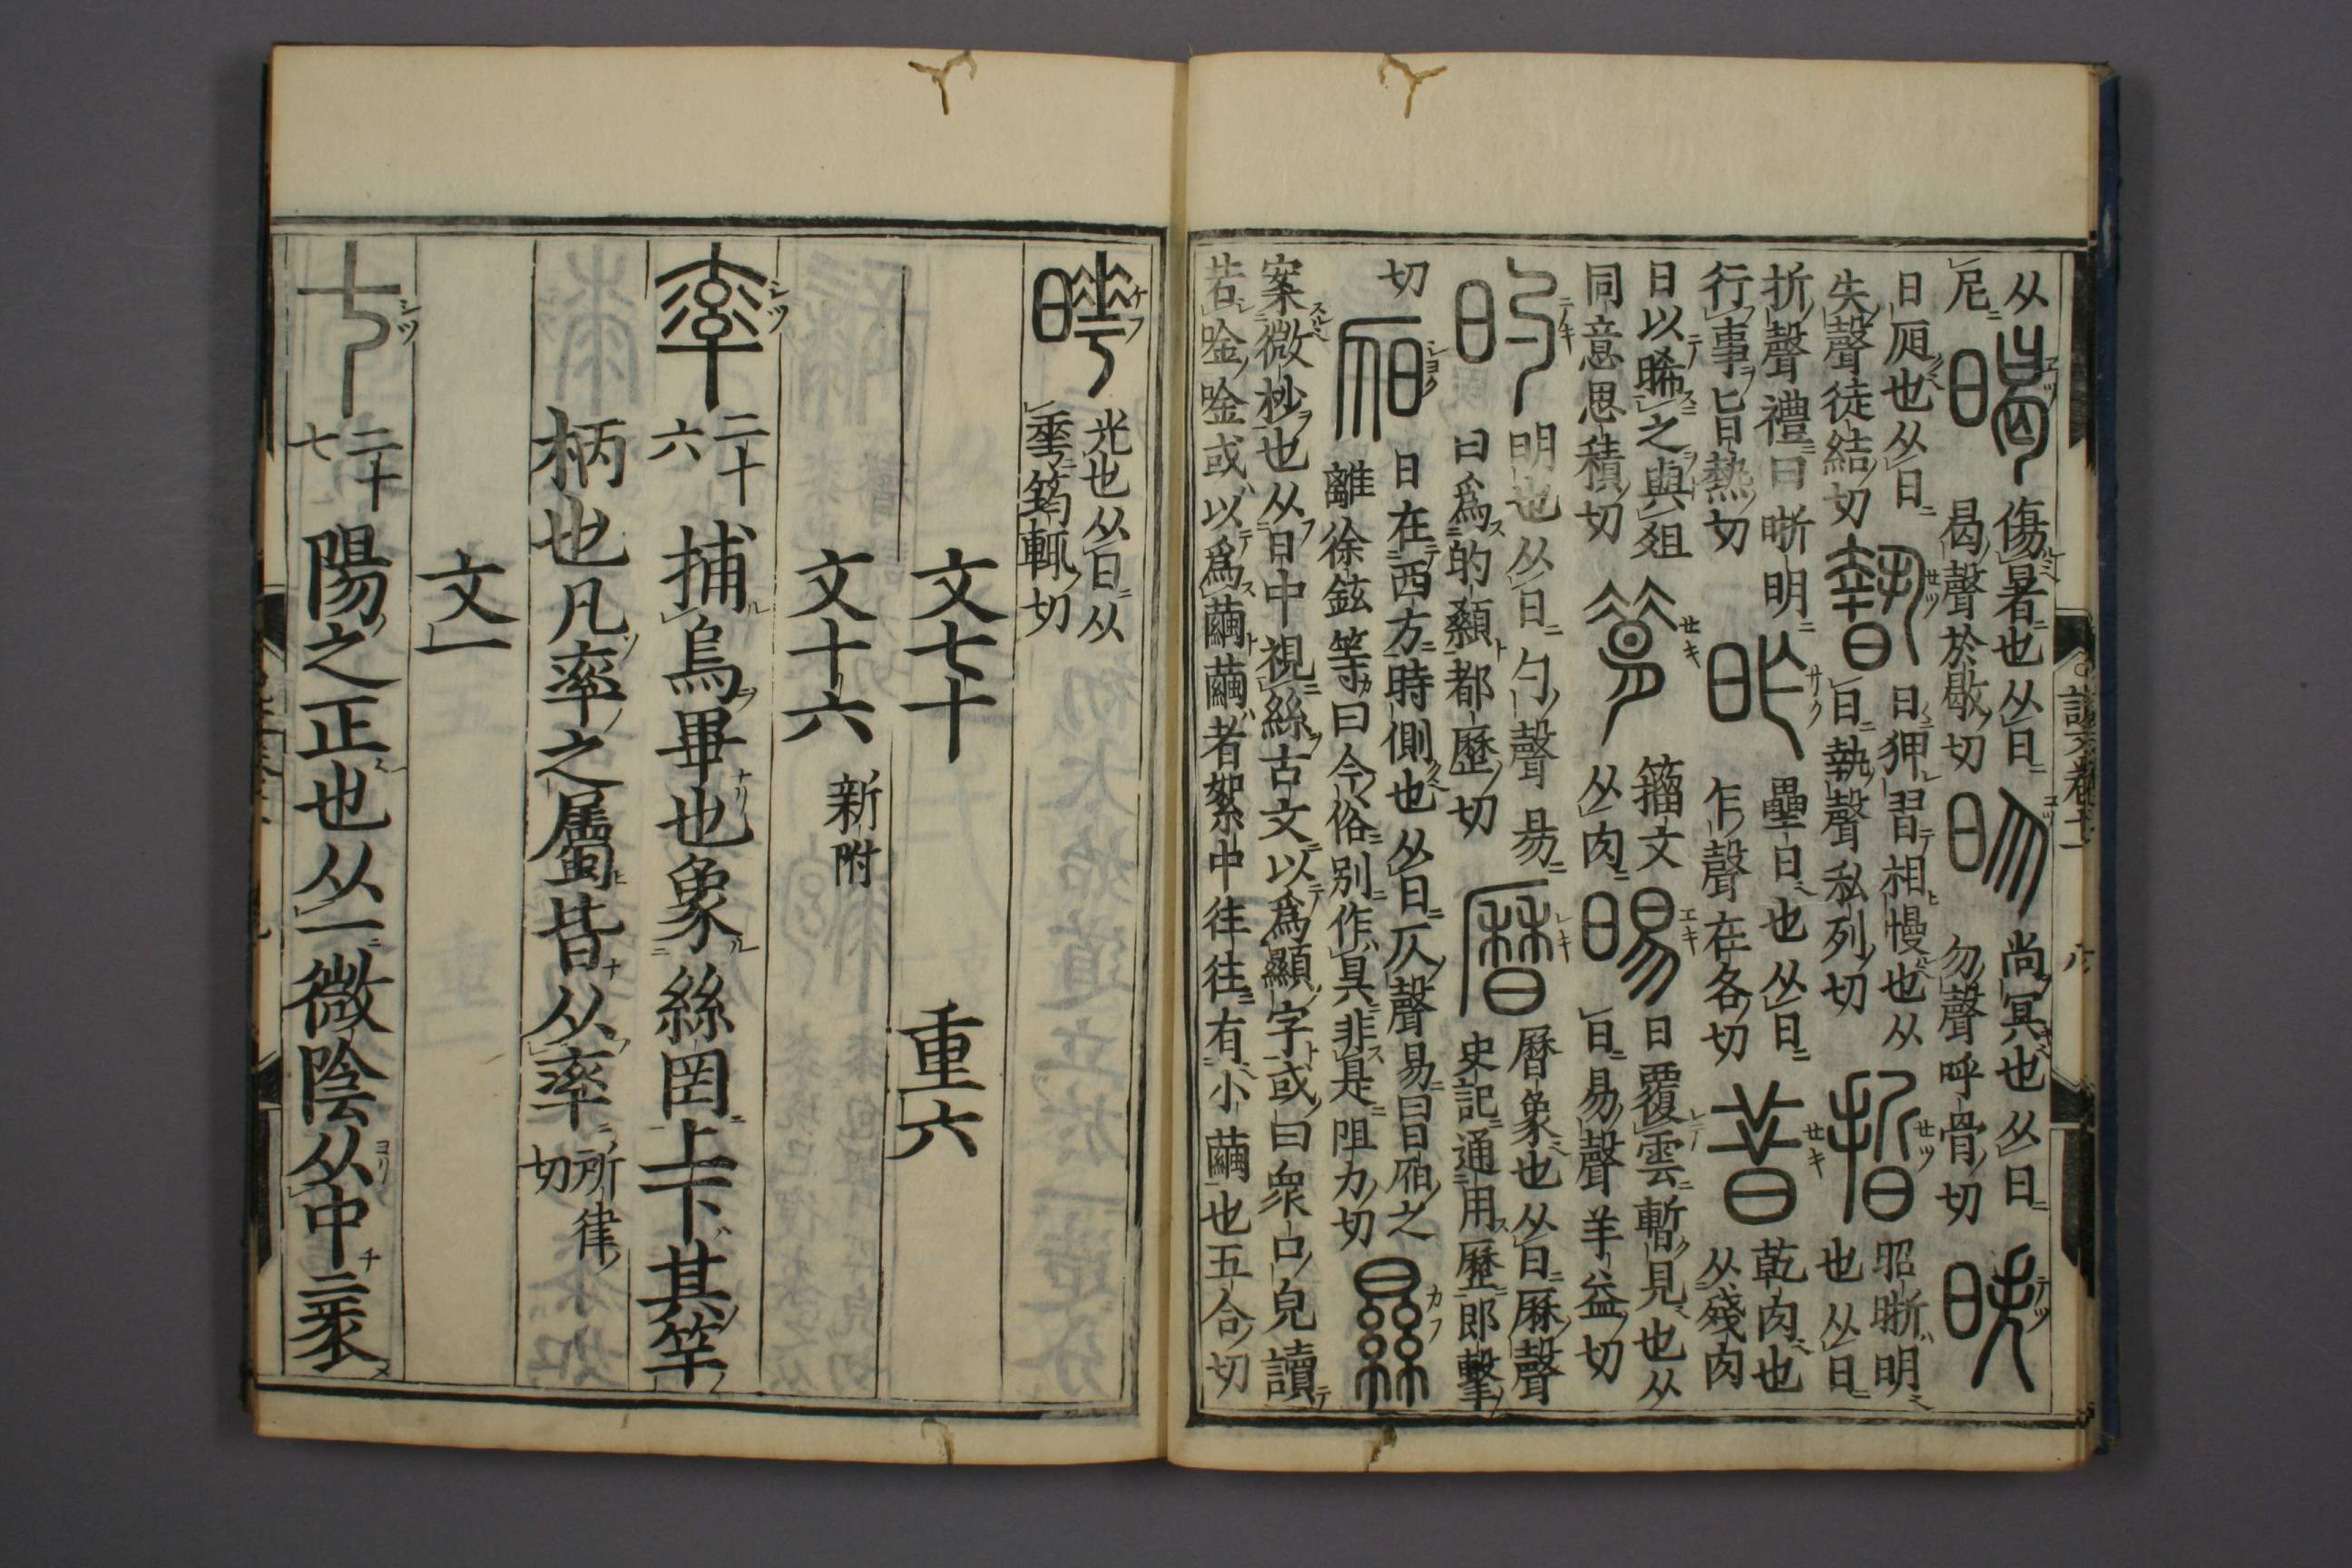 从尼暍傷暑也从日曷聲於歇切昒尚冥也从日勿聲呼骨切昳
日昃也从日失聲徒結切暬日狎習相慢也从日執聲私列切晢昭晣明也从日
折聲禮曰晣明行事旨熱切昨壘日也从日乍聲在各切昔乾肉也从殘肉
日以晞之與俎同意思積切籀文从肉晹日覆雲暫見也从日易聲羊益切
旳明也从日勺聲易曰爲的顙都歷切曆曆象也从日厤聲史記通用歷郎擊
切昃日在西方時側也从日仄聲易曰日昃之離徐鉉等曰今俗別作昗非是阻力切㬎
案微杪也从日中視絲古文以爲顯字或曰衆口皃讀若唫唫或以爲繭繭者絮中往往有小繭也五合切
曄光也从日从𠌶筠輒切
文七十 重六
文十六 新附
率二十六捕鳥畢也象絲罔上下其竿
柄也凡率之屬皆从率所律切
文一
七二十七陽之正也从一微陰从中衺